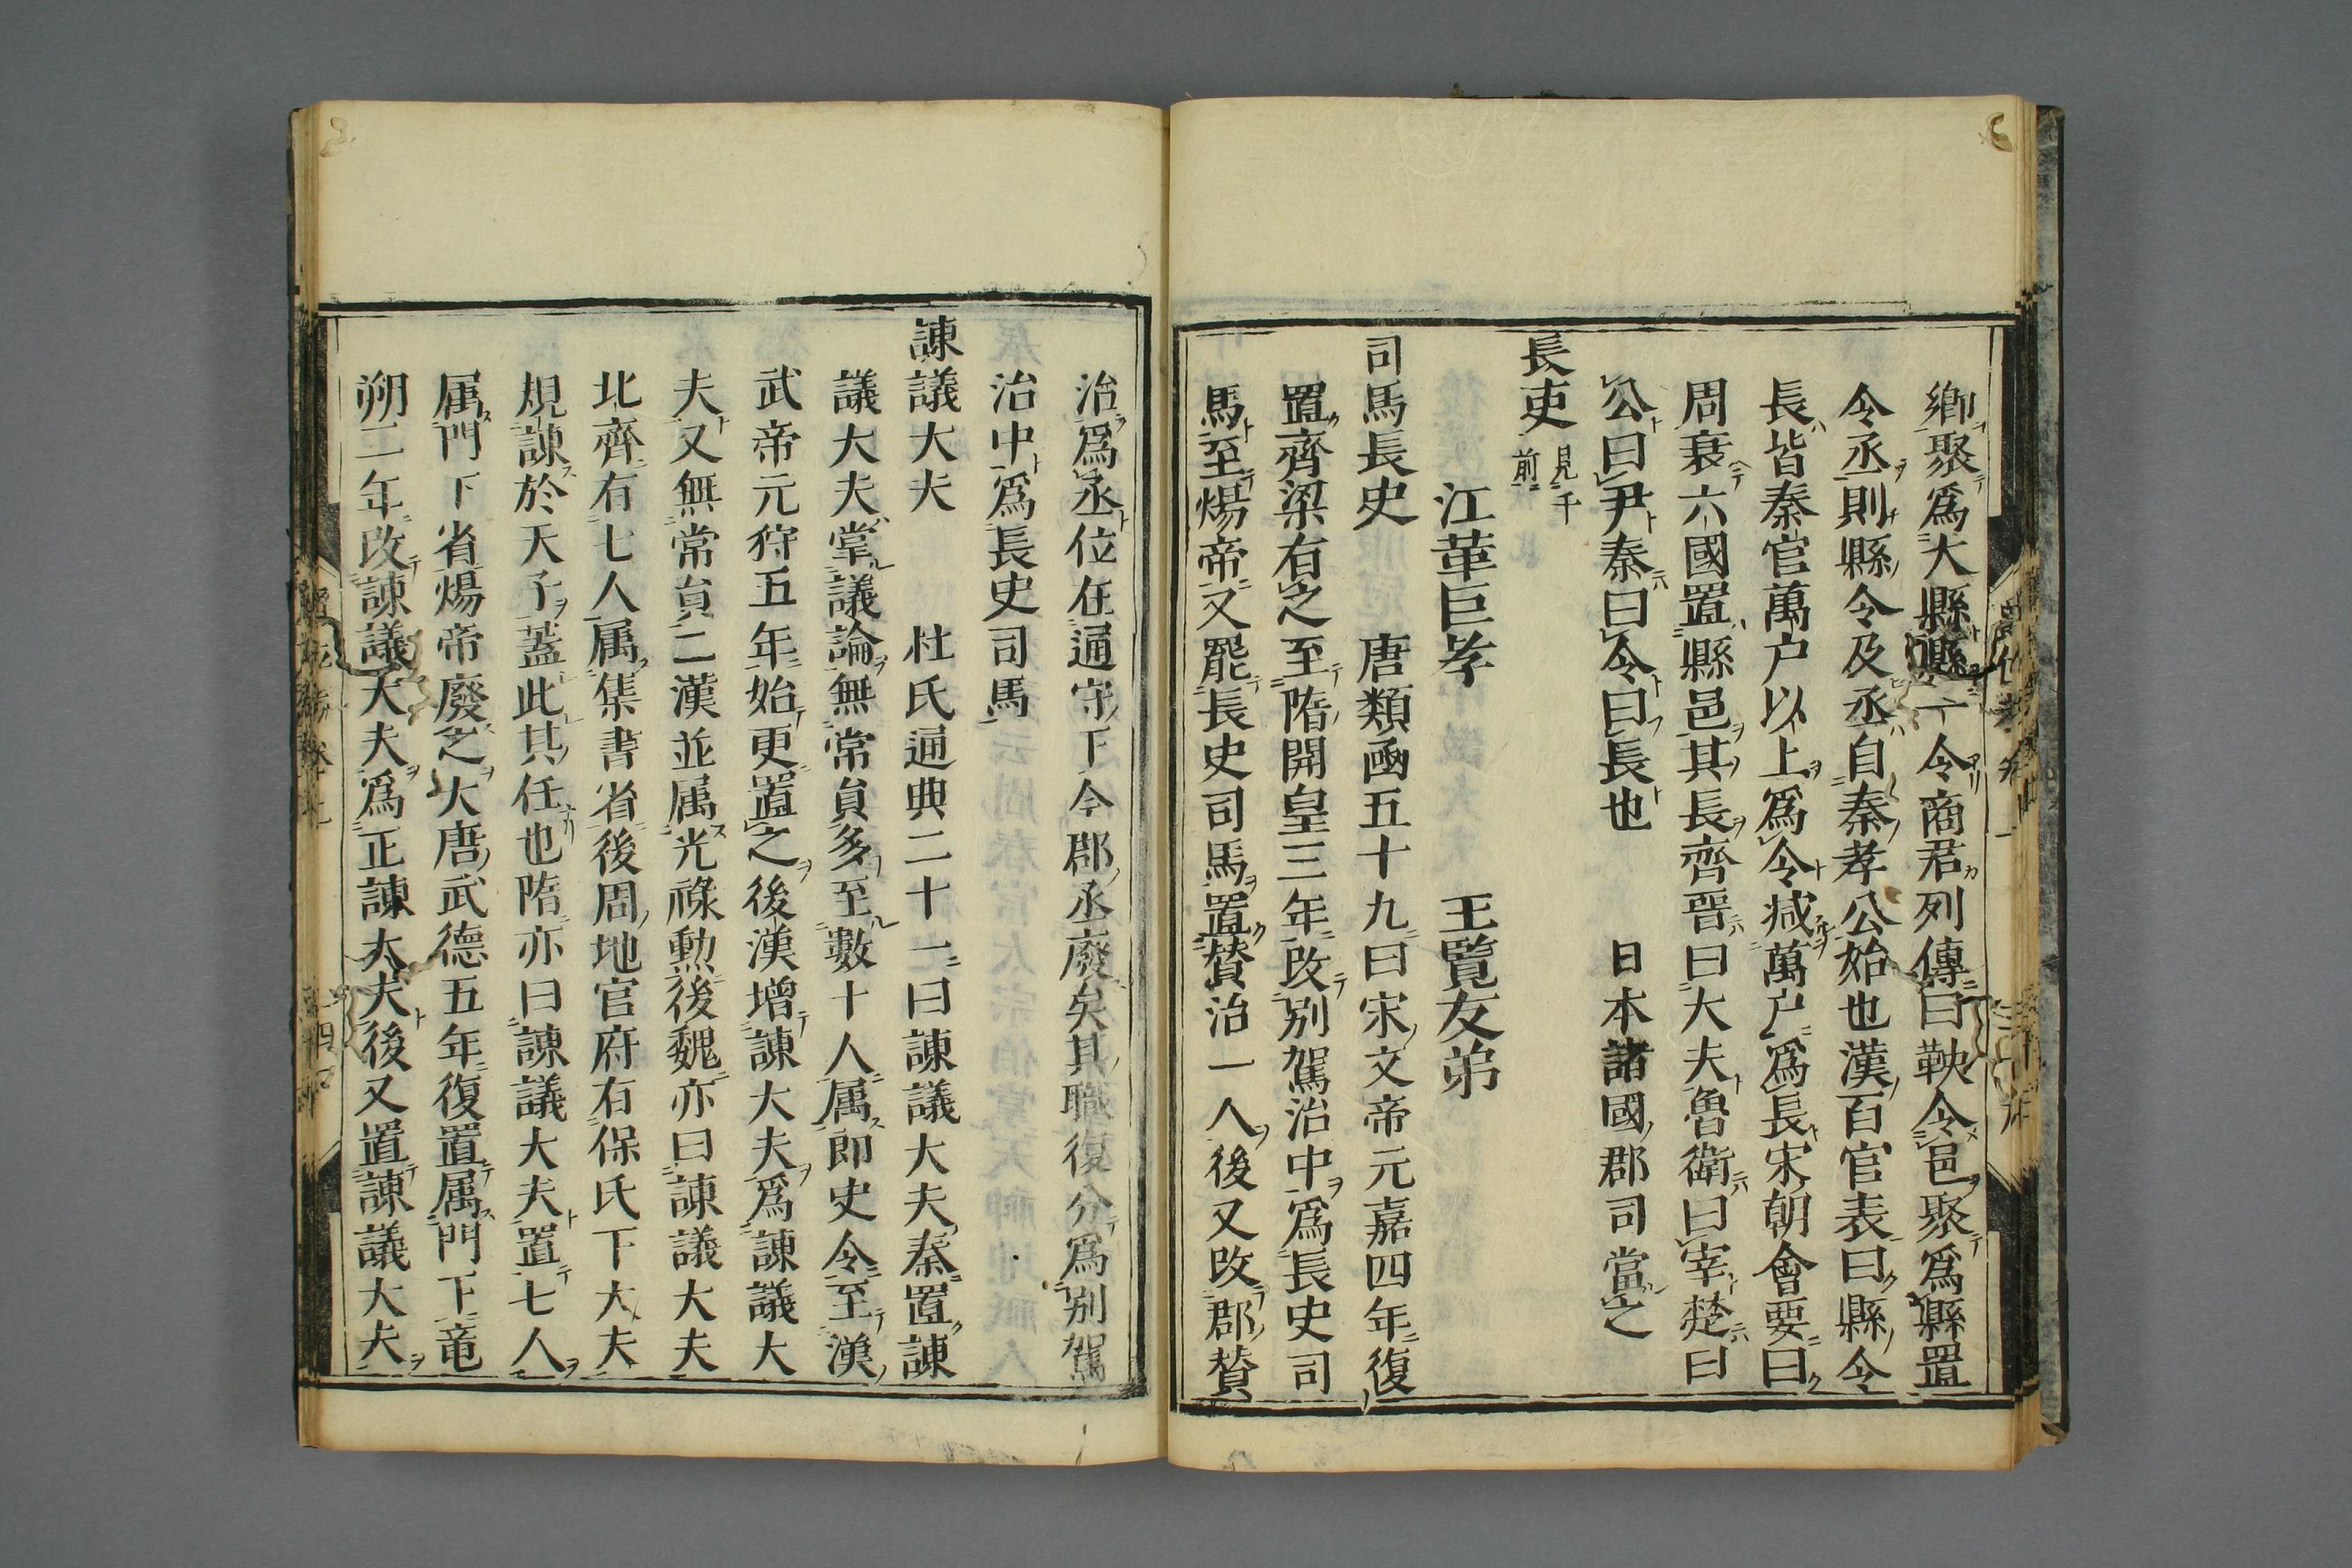 鄉聚爲大縣縣一令商君列傳曰鞅令邑聚爲縣置
令丞則縣令及丞自秦孝公始也漢百官表曰縣令
長皆秦官萬户以上爲令减萬户爲長宋朝會要曰
周衰六國置縣邑其長齊晉曰大夫魯衛曰宰楚曰
公曰尹秦曰令曰長也 日本諸國郡司當之
長吏 見千前
江革巨孝 王覽友弟
司馬長史 唐類函五十九曰宋文帝元嘉四年復
置齊梁有之至隋開皇三年改別駕治中爲長史司
馬至煬帝又罷長史司馬置賛治一人後又改郡賛
治爲丞位在通守下今郡丞廢矣其職復分爲別駕
治中爲長史司馬
諫議大夫 杜氏通典二十一曰諫議大夫秦置諫
議大夫掌議論無常員多至數十人属郎史令至漢
武帝元狩五年始更置之後漢增諫大夫爲諫議大
夫又無常員二漢並属光祿勲後魏亦曰諫議大夫
北齊有七人属集書省後周地官府有保氏下大夫
規諫於天子蓋此其任也隋亦曰諫議大夫置七人
属門下省煬帝廢之大唐武德五年復置属門下竜
朔二年改諫議大夫爲正諫大夫後又置諫議大夫